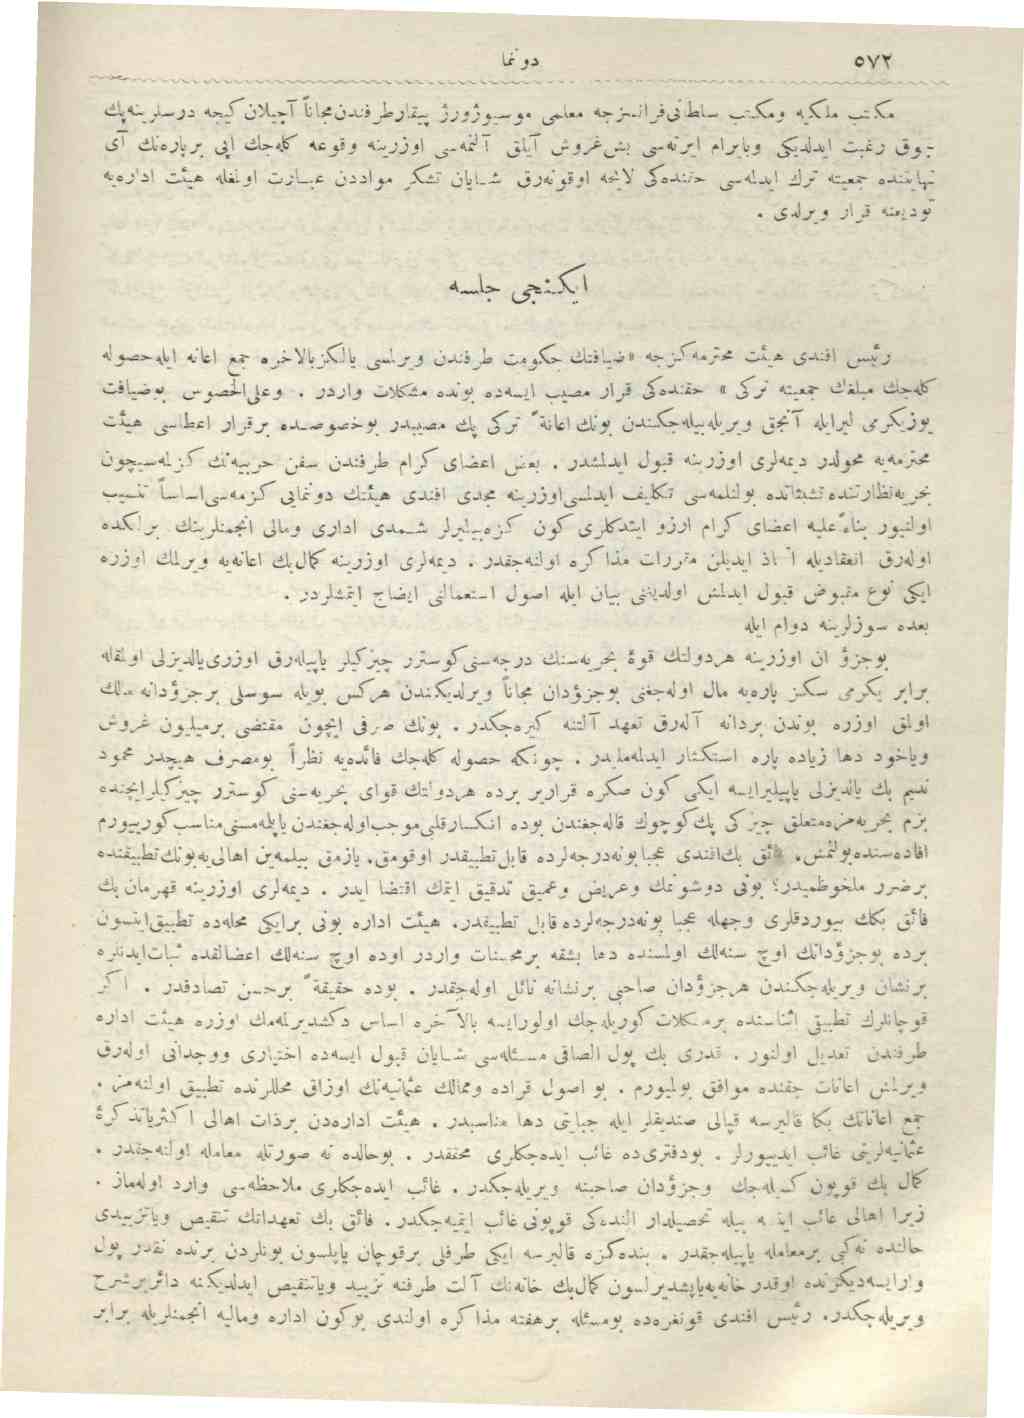 ٥٧٢
دونما
مكتب ملكیه ومكتب سلطانی فرانسزجه معلمی موسیو ژورژ پیقار طرفندن مجاناً آچیلان كیجه درسلرینه پك
چوق رغبت ایدلدیكی وبایرام ایرته‌سی بش غروش آیلق آلنمه‌سی اوزرینه وقوعه كله‌جك ایی بر پاره‌نك آی
نهایتنده جمعیته ترك ایدلمه‌سی حقنده‌كی لایحه اوقونه‌رق شایان تشكر مواددن عبارت اولمغله هیئت اداره‌یه
تودیعنه قرار ویرلدی .
ایكنجی جلسه
رئیس افندی هیئت محترمه‌كزجه «ضیافتك حكومت طرفندن ویرلمسی یالكز بالاخره جمع اعانه ایله حصوله
كله‌جك مبلغك جمعیته تركی » حقنده‌كی قرار مصیب ایسه‌ده بونده مشكلات واردر . وعلی‌الخصوص بو ضیافت
یوزیكرمی لیرایله آنجق ویریله‌بیله‌جكندن بونك اعانةً تركی پك مصیبدر بوخصوصده برقرار اعطاسی هیئت
محترمه‌یه محولدر دیمه‌لری اوزرینه قبول ایدلمشدر . بعض اعضای كرام طرفندن سفن حربیه‌نك كزلمه‌سیچون
بحریه نظارتنده تشبثاتده بولنلمه‌سی تكلیف ایدلمسی اوزرینه مجدی افندی هیئتك دونمایی كزمه‌سی اساساً تنسیب
اولنیور بناءً علیه اعضای كرام آرزو ایتدكلری كون كزه‌بیلیرلر شمدی اداری ومالی انجمنلرینك برلكده
اوله‌رق انعقادیله اتخاذ ایدیلن مقررات مذاكره اولنه‌جقدر . دیمه‌لری اوزرینه كمال بك اعانه‌یه ویرلمك اوزره
ایكی نوع مقبوض قبول ایدلمش اولدیغنی بیان ایله اصول استعمالنی ایضاح ایتمشلردر .
بعده سوزلرینه دوام ایله
بوجزؤدان اوزرینه هردولتك قوهٔ بحریه‌سنك درجه‌سنی كوسترر چیزكیلر یاپیله‌رق اوزری یالدیزلی اولمقله
برابر یكرمی سكز پاره‌یه مال اوله‌جغنی بوجزؤدان مجاناً ویرلدیكندن هركس بویله سوسلی برجزؤدانه مالك
اولمق اوزره بوندن بردانه آله‌رق تعهد آلتنه كیره‌جكدر . بونك صرفی ایچون مقتضی برمیلیون غروش
ویاخود دها زیاده پاره استكثار ایدلمه‌ملیدر . چونكه حصوله كله‌جك فائده‌یه نظراً بومصرف هیچدر محمود
ندیم بك یالدیزلی یاپیلیرایسه ایكی كون صكره قراریر برده هردولتك قوای بحریه‌سنی كوسترر چیزكیلر ایچنده
بزم بحریه‌مزه متعلق چیزكی پك كوچوك قاله‌جغندن بوده انكسار قلبی موجب اوله‌جغندن یاپلمه‌مسنی مناسب كوریورم
افاده‌سنده بولنمش. فائق بك افندی عجبا بونه‌درجه‌لرده قابل تطبیقدر اوقومق. یازمق بیلمه‌ین اهالی‌یه بونك تطبیقنده
برضرر ملحوظمیدر؟ بونی دوشونمك وعریض وعمیق تدقیق ایتمك اقتضا ایدر . دیمه‌لری اوزرینه قهرمان بك
فائق بكك بیوردقلری وجهله عجبا بونه‌درجه‌لرده قابل تطبیقدر. هیئت اداره بونی برایكی محله‌ده تطبیق ایتسون
برده بوجزؤدانك اوچ سنه‌لك اولمسنده دها بشقه برمحسنات واردر اوده اوچ سنه‌لك اعضالقده ثبات ایدنلره
برنشان ویریله‌جكندن هرجزؤدان صاحبی برنشانه نائل اوله‌جقدر . بوده حقیقةً برحسن تصادفدر . اكر
قوچانلرك تطبیقی اثناسنده برمشكلات كوریله‌جك اولورایسه بالآخره اساس دكشدیرلمه‌مك اوزره هیئت اداره
طرفندن تعدیل اولنور . قدری بك پول الصاقی مسئله‌سی شایان قبول ایسه‌ده اختیاری ووجدانی اوله‌رق
ویرلمش اعانات حقنده موافق بولمیورم . بو اصول قراده وممالك عثمانیه‌نك اوزاق محللرنده تطبیق اولنه‌مز .
جمع اعاناتك بكا قالیرسه قپالی صندیقلر ایله جبایتی دها مناسبدر . هیئت اداره‌دن برذات اهالی اكثریا تذكرهٔ
عثمانیه‌لرینی غائب ایدییورلر . بودفتری‌ده غائب ایده‌جكلری محققدر . بوحالده نه صورتله معامله اولنه‌جقدر .
كمال بك قوپون كسیله‌جك وجزؤدان صاحبنه ویریله‌جكدر . غائب ایده‌جكلری ملاحظه‌سی وارد اوله‌ماز .
زیرا اهالی غائب ایتسه بیله تحصیلدار النده‌كی قوپونی غائب ایتمیه‌جكدر. فائق بك تعهداتك تنقیص ویاتزییدی
حالنده نه‌كبی برمعامله یاپیله‌جقدر . بنده‌كزه قالیرسه ایكی طرفلی برقوچان یاپلسون بونلردن برنده نقدر پول
وارایسه دیكرنده اوقدر خانه‌یه یاپشدیرلسون كمال بك خانه‌نك آلت طرفنه تزیید ویاتنقیص ایدلدیكنه دائر برشرح
ویریله‌جكدر. رئیس افندی قونغره‌ده بومسئله برهفته مذاكره اولندی بوكون اداره ومالیه انجمنلریله برابر